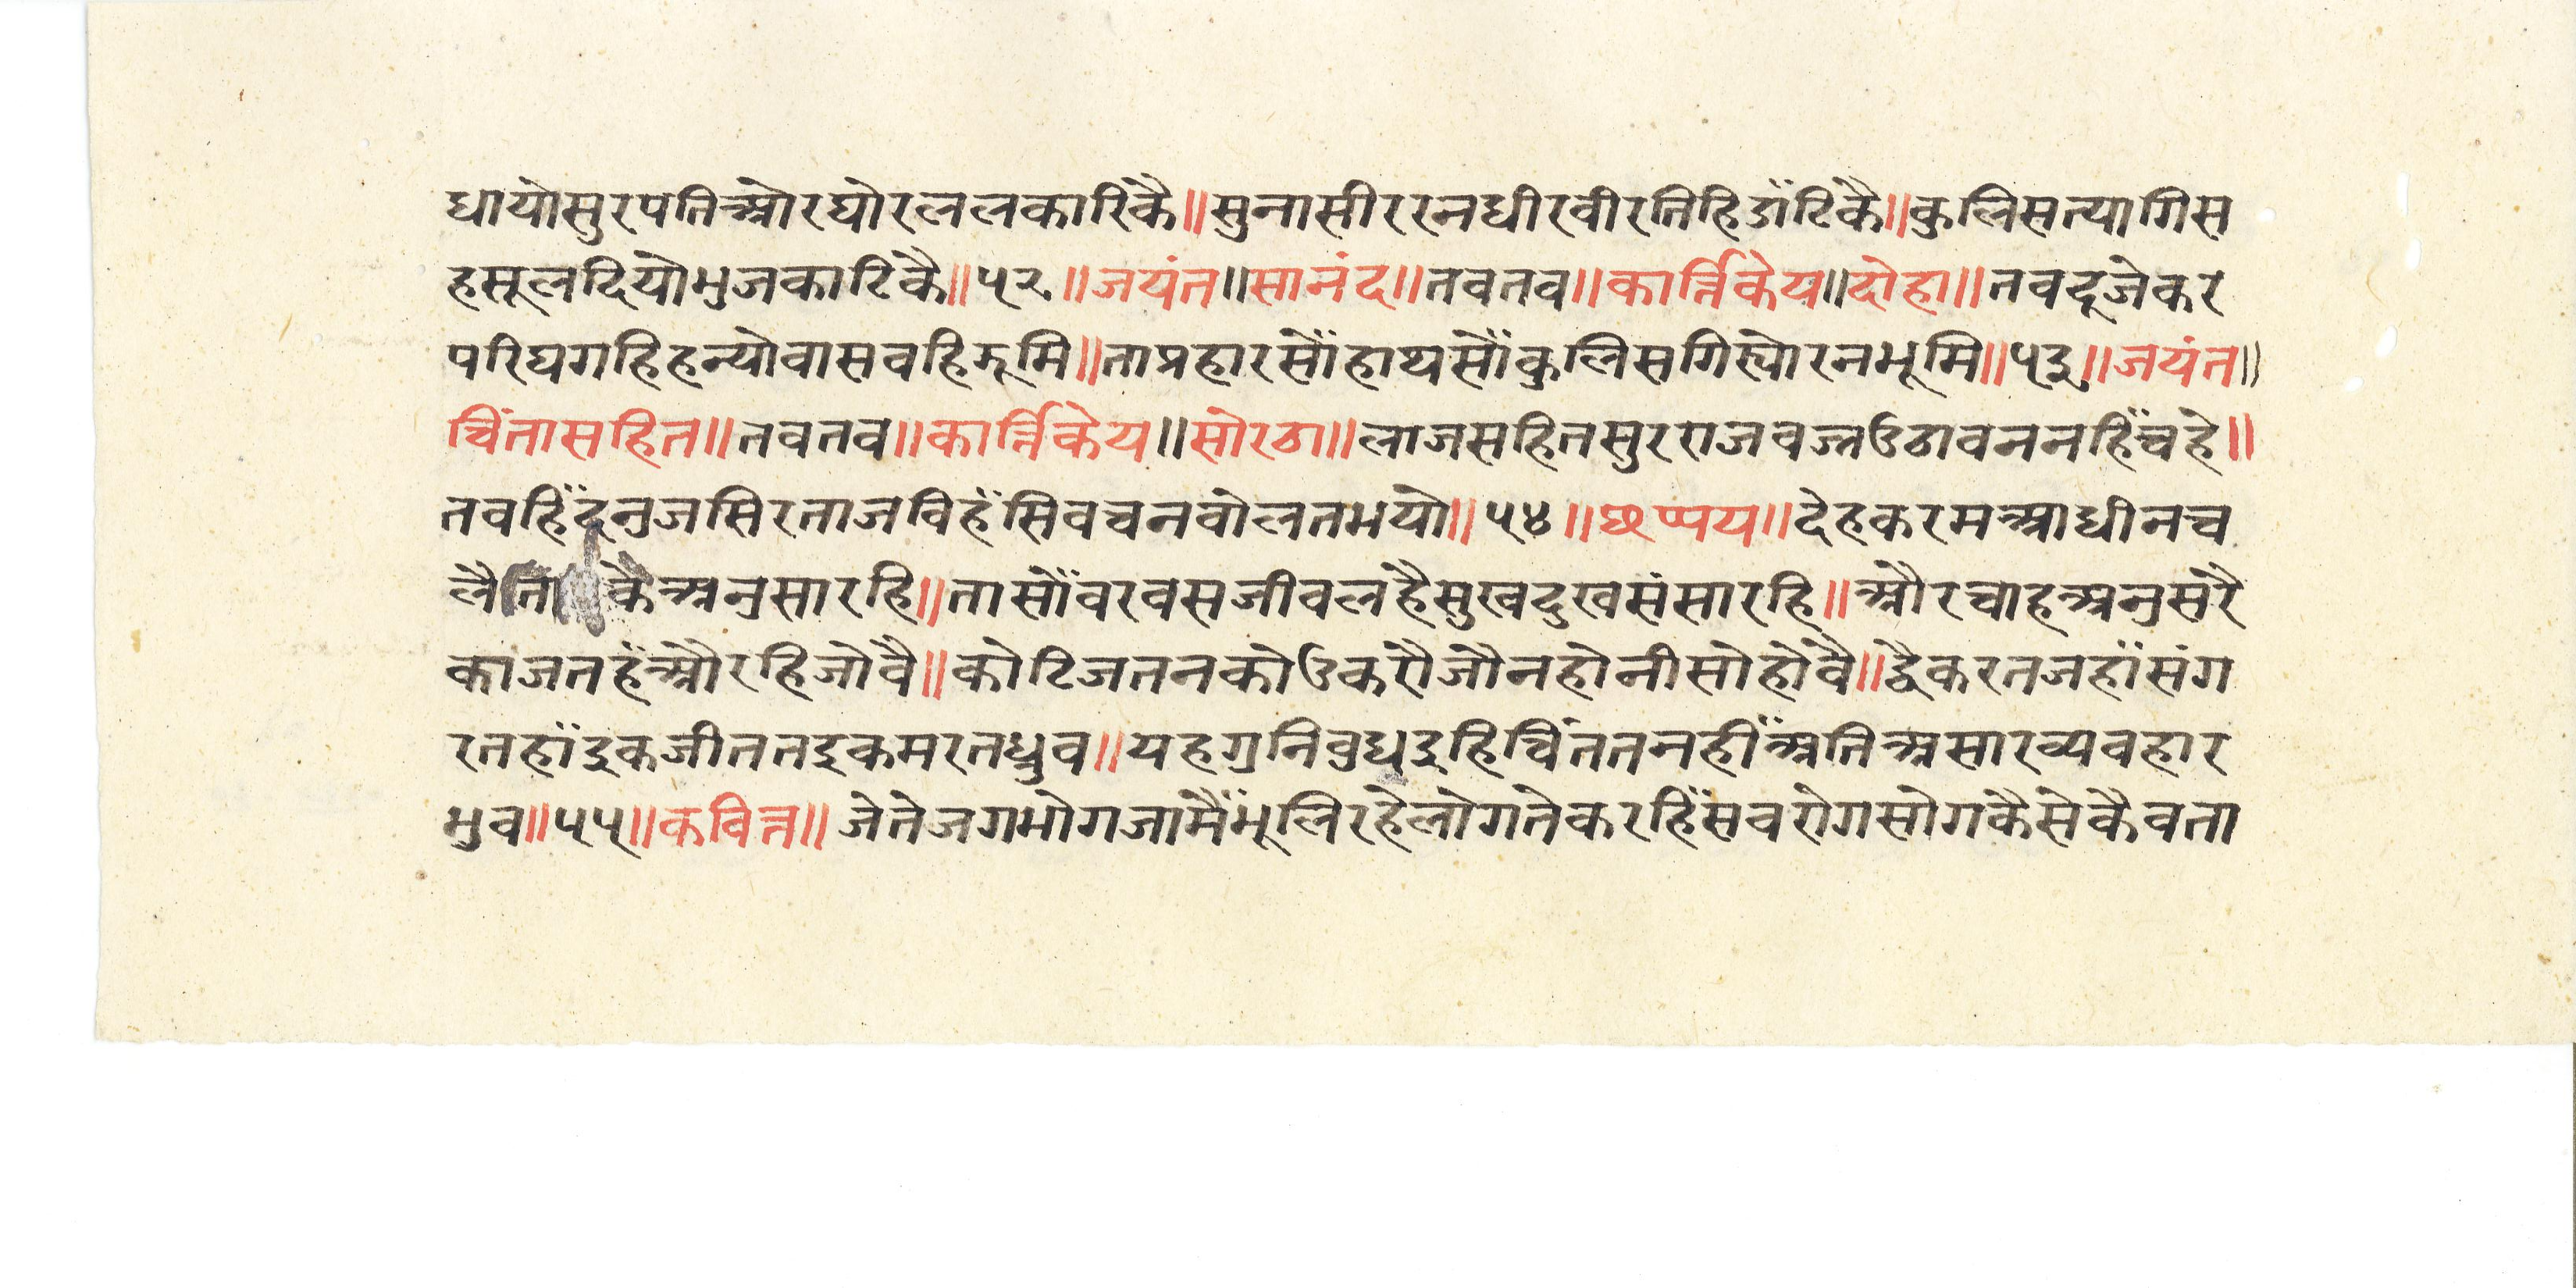 धायोसुरपतिओरघोरललकारिकै॥सुनासीररनधीरवीरतिहिडाँटिकै॥कुलिसत्यागिस
हसूलदियोभुजकाटिकै॥५२॥जयंत॥सानंद॥तवतव॥कार्त्तिकेय॥दोहा॥तवदूजेकर
परिघगहिहन्योवासवहिझूमि॥ताप्रहारसौँहाथसौँकुलिसगिर्‍योरनभूमि॥५३॥जयंत॥
चिंतासहित॥तवतव॥कार्त्तिकेय॥सोरठा॥लाजसहितसुरराजवज्रउठावननहिँचहे॥
तवहिँदनुजसिरताजविहँसिवचनवोलतभयो॥५४॥छप्पय॥देहकरमआधीनच
लैता कैअनुसारहि॥तासौँवरवसजीवलहैसुखदुखसंसारहि॥औरचाहअनुसरै
काजतहँऔरहिजोवै॥कोटिजतनकोउकरौजौनहोनीसोहोवै॥द्वैकरतजहाँसंग
रतहाँइकजीततइकमरतध्रुव॥यहगुनिवुधइहिचिंततनहीँअतिअसारव्यवहार
भुव॥५५॥कवित्त॥जेतेजगभोगजामैँभूलिरहेलोगतेकरहिँसवरोगसोगकैसेकैवता